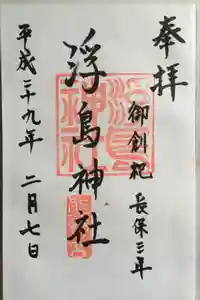 奉拝
御創祀 長保三年
浮島神社
平成二十九年 二月七日